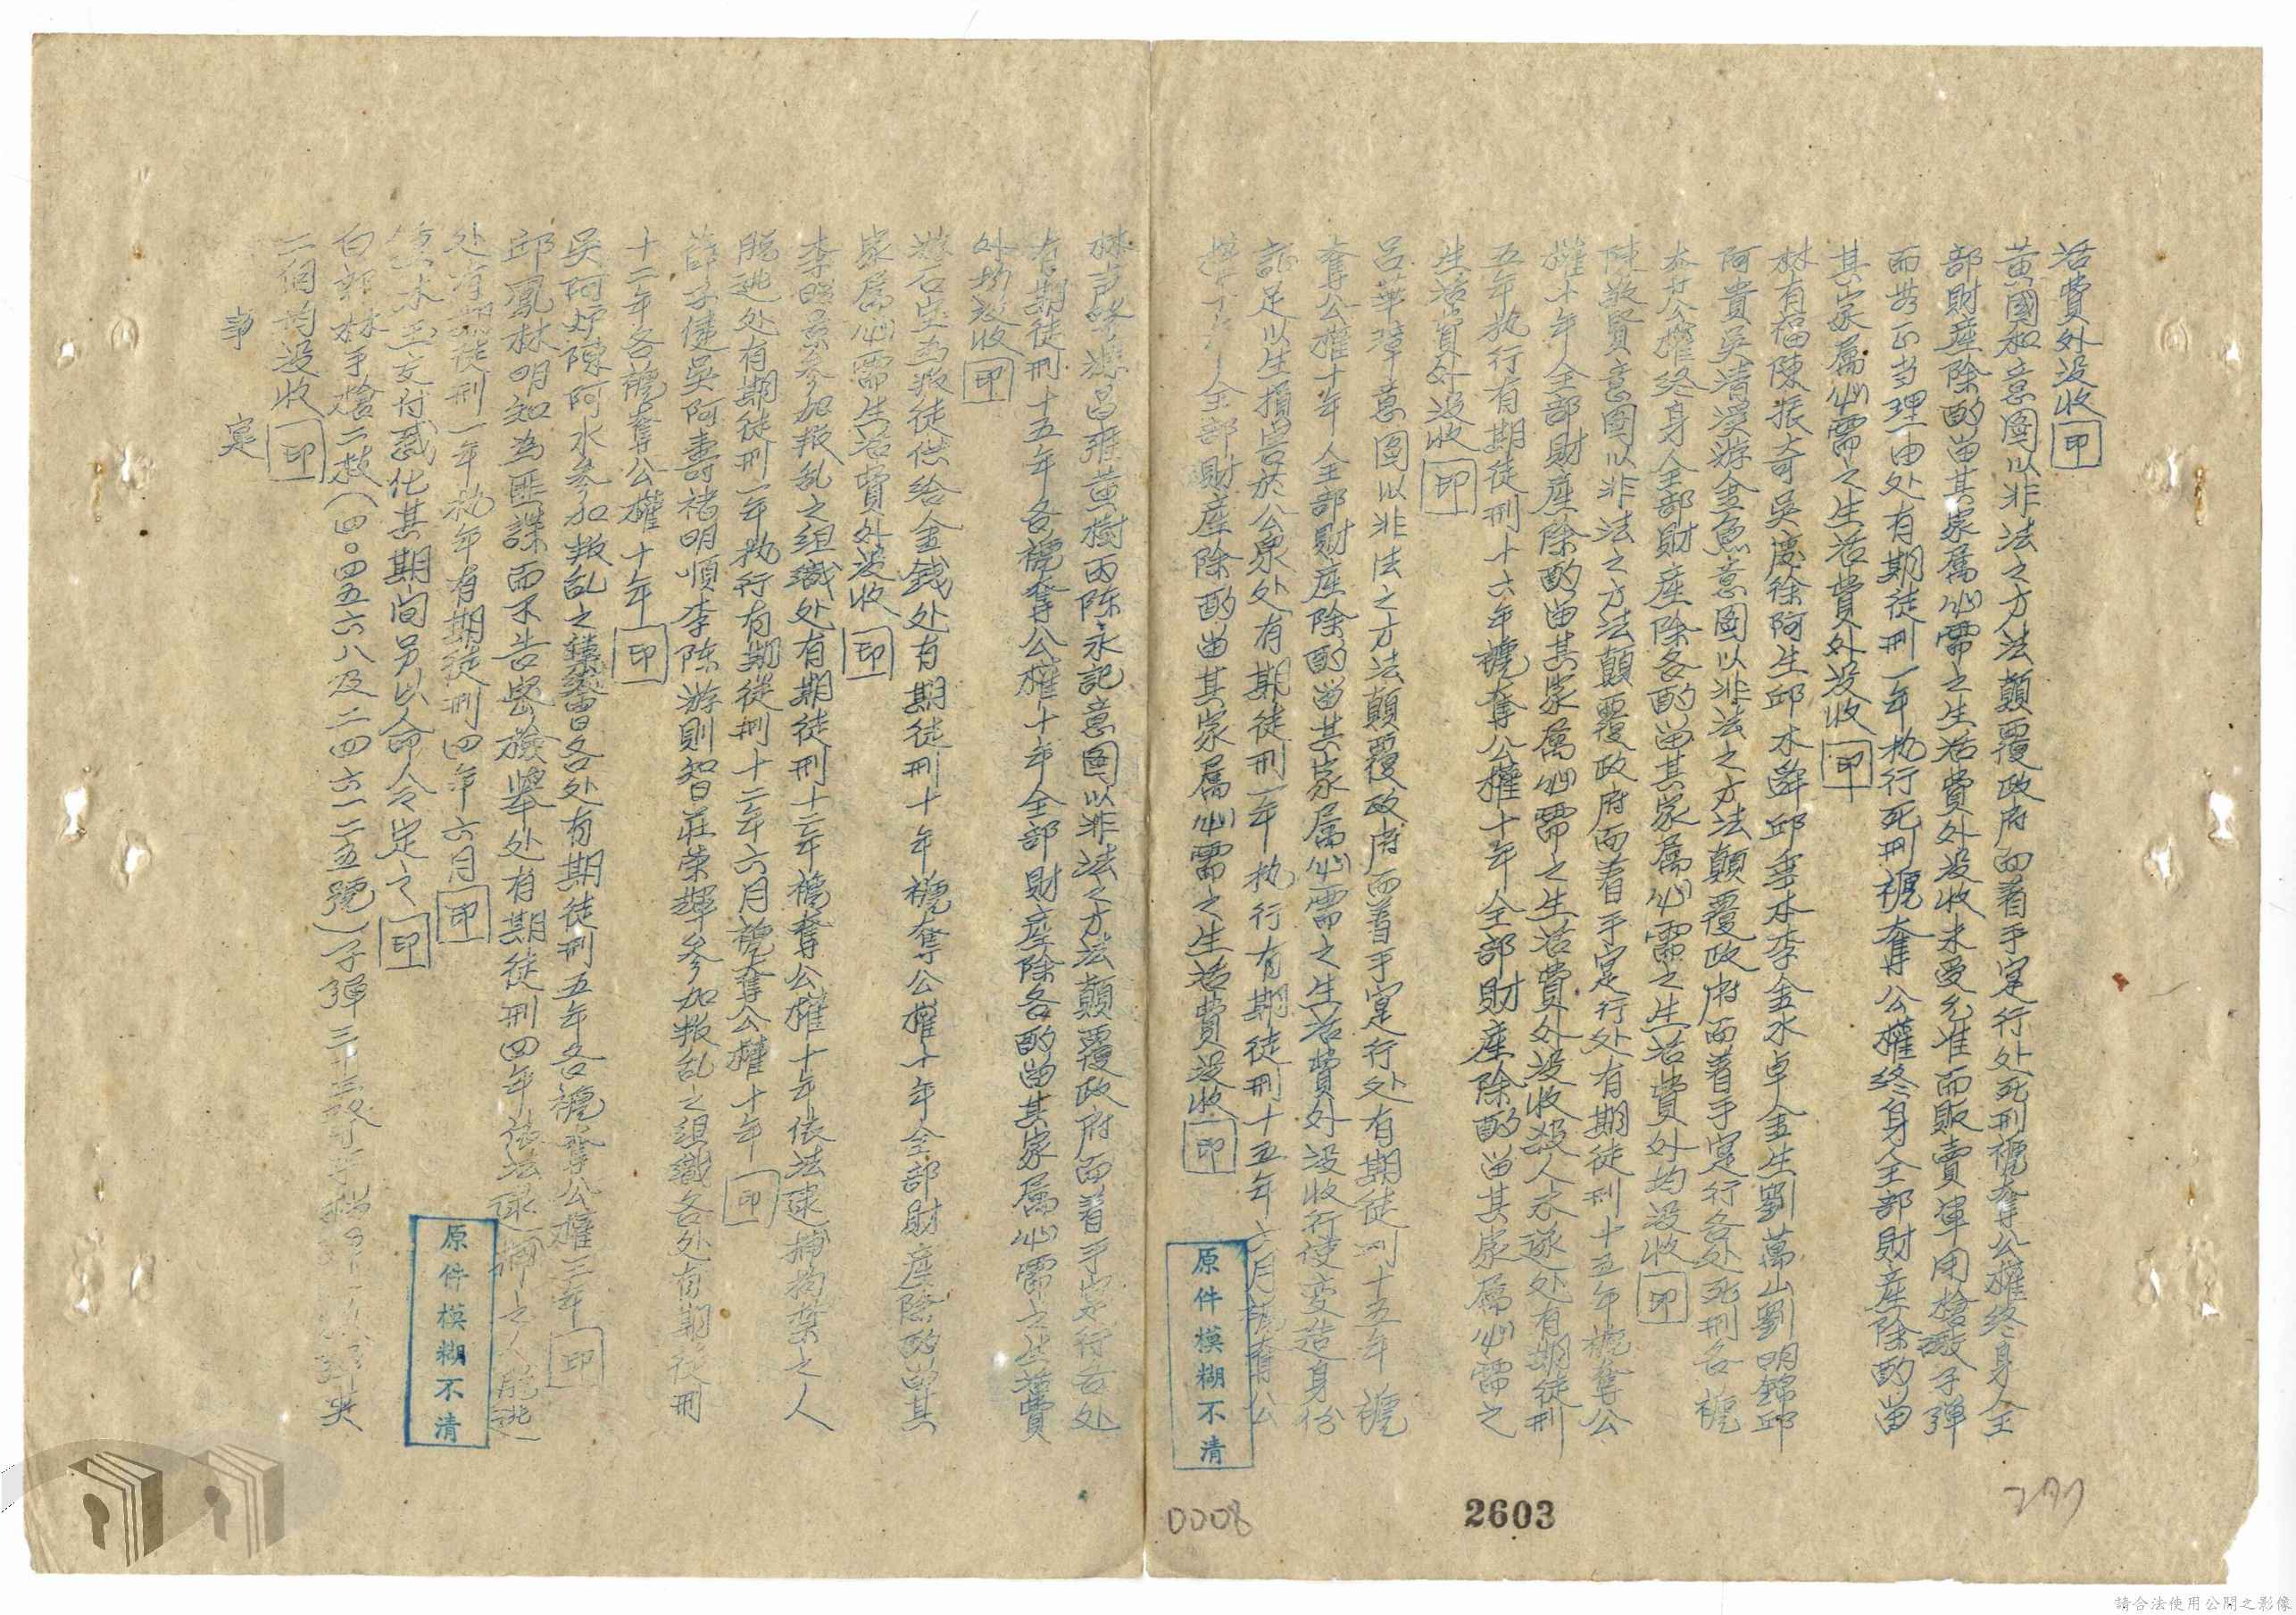 活費外没收印
黃國和意圖以非法之方法顛覆政府而着手实行处死刑褫奪公權終身全
部財產除酌留其家属必需之生活費外没收未受允准而販賣軍用槍砲子彈
而無正当理由处有期徒刑一年执行死刑褫奪公權終身全部財產除酌留
其家属必需之生活費外没收印
林有福陳振奇吳慶徐阿生邱水邱垂本李金水卓金生劉萬山劉明錦邱
阿貴吳清溪游金魚意图以非法之方法顛覆政府而着手实行各处死刑各褫
奪公權終身全部財產除各酌留其家属必需之生活費外均没收印
陳敬賢意圖以非法之方法顛覆政府而着手实行处有期徒刑十五年褫奪公
權十年全部財產除酌留其家属必需之生活費外没收殺人未遂处有期徒刑
五年执行有期徒刑十六年褫奪公權十年全部財產除酌留其家属必需之
生活費外没收印
呂華璋意图以非法之方法顛覆政府而着手实行处有期徒刑十五年褫
奪公權十年全部財產除酌留其家属必需之生活費外没收行使变造身份
証足以生損害於公衆处有期徒刑一年执行有期徒刑十五年六月褫奪公
權十年全部財產除酌留其家属必需之生活費没收印
林声發游昌雍黃樹因陈永記意圖以非法之方法顛覆政府而着手实行各处
有期徒刑十五年各褫奪公權十年全部財產除各酌留其家属必需之生活費
外均没收印
游石宝為叛徒供给金錢处有期徒刑十年褫奪公權十年全部財產除酌留其
家属必需生活費外没收印
李照景参加叛乱之组織处有期徒刑十二年褫奪公權十年依法逮捕拘禁之人
脱逃处有期徒刑一年执行有期徒刑十二年六月褫奪公權十年印
薛子健吳阿壽褚明順李陈游則智莊榮輝参加叛乱之组織各处有期徒刑
十二年各褫奪公權十年印
吳阿炉陳阿水参加叛乱之集会各处有期徒刑五年各褫奪公權三年印
邱鳳林明知為匪諜而不告密檢舉处有期徒刑四年依法逮捕之人脱逃
处有期徒刑一年执行有期徒刑四年六月印
水玉交付感化其期间另以命令定之印
白郎林手槍二枝（四〇四五六八及二四六一二五號）子彈三十三發
二個均没收印
事　实
原件模糊不清
原件模糊不清
0008
2603
請合法使用公開之影像